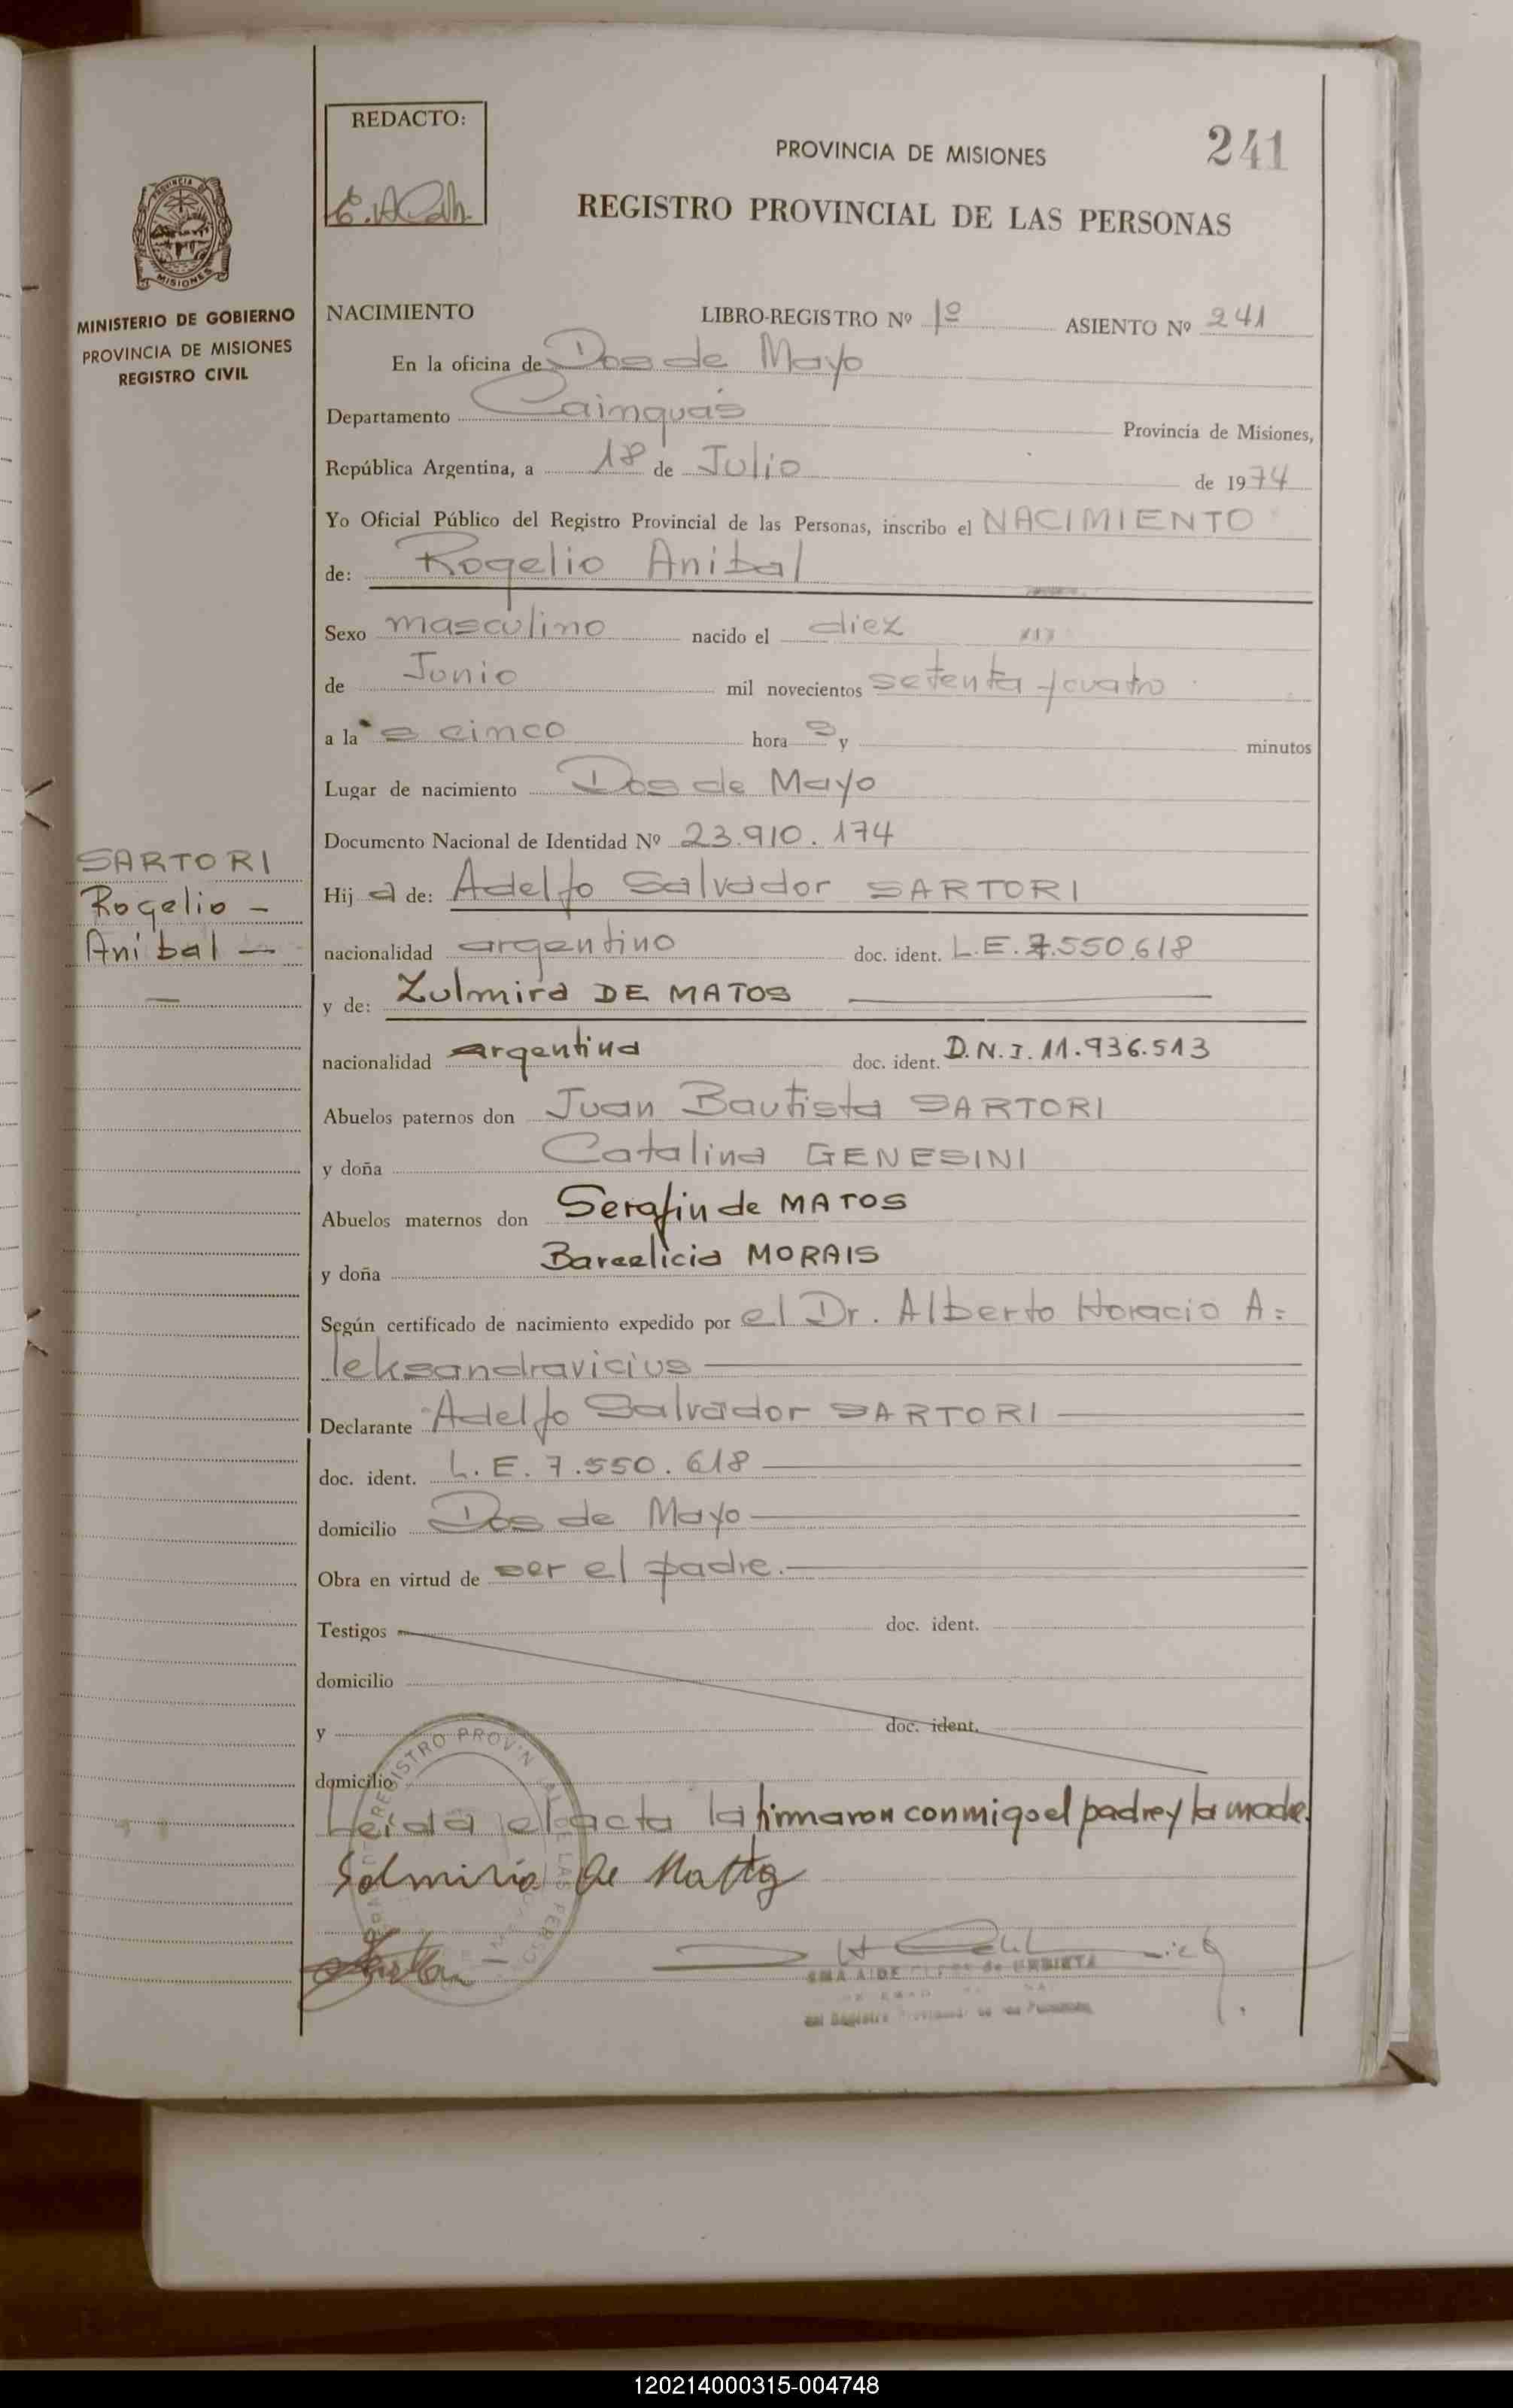 REDACTO:
PROVINCIA DE MISIONES
241
REGISTRO PROVINCIAL DE LAS PERSONAS
PROVINCIA DE
MISIONES
MINISTERIO DE GOBIERNO
PROVINCIA DE MISIONES
REGISTRO CIVIL
NACIMIENTO LIBRO-REGISTRO Nº 1º ASIENTO Nº 241
En la oficina de Dos de Mayo
Departamento Cainguas Provincia de Misiones,
República Argentina, a 18 de Julio de 1974
Yo Oficial Público del Registro Provincial de las Personas, inscribo el NACIMIENTO
de: Rogelio Anibal
Sexo masculino nacido el diez
de Junio mil novecientos setenta y cuatro
a la s cinco hora s y minutos
Lugar de nacimiento Dos de Mayo
Documento Nacional de Identidad Nº 23.910.174
SARTORI
Rogelio -
Anibal —
Hij o de: Adelfo Salvador SARTORI
nacionalidad argentino doc. ident. L.E. 7.550.618
y de: Zulmira DE MATOS
nacionalidad argentina doc. ident. D.N.I. 11.936.513
Abuelos paternos don Juan Bautista SARTORI
y doña Catalina GENESINI
Abuelos maternos don Serafin de MATOS
y doña Barcelicia MORAIS
Según certificado de nacimiento expedido por el Dr. Alberto Horacio A=
leksandravicius
Declarante Adelfo Salvador SARTORI
doc. ident. L.E. 7.550.618
domicilio Dos de Mayo
Obra en virtud de ser el padre.
Testigos doc. ident.
domicilio
y doc. ident.
domicilio
Leida el acta la firmaron conmigo el padre y la madre.
de
120214000315-004748